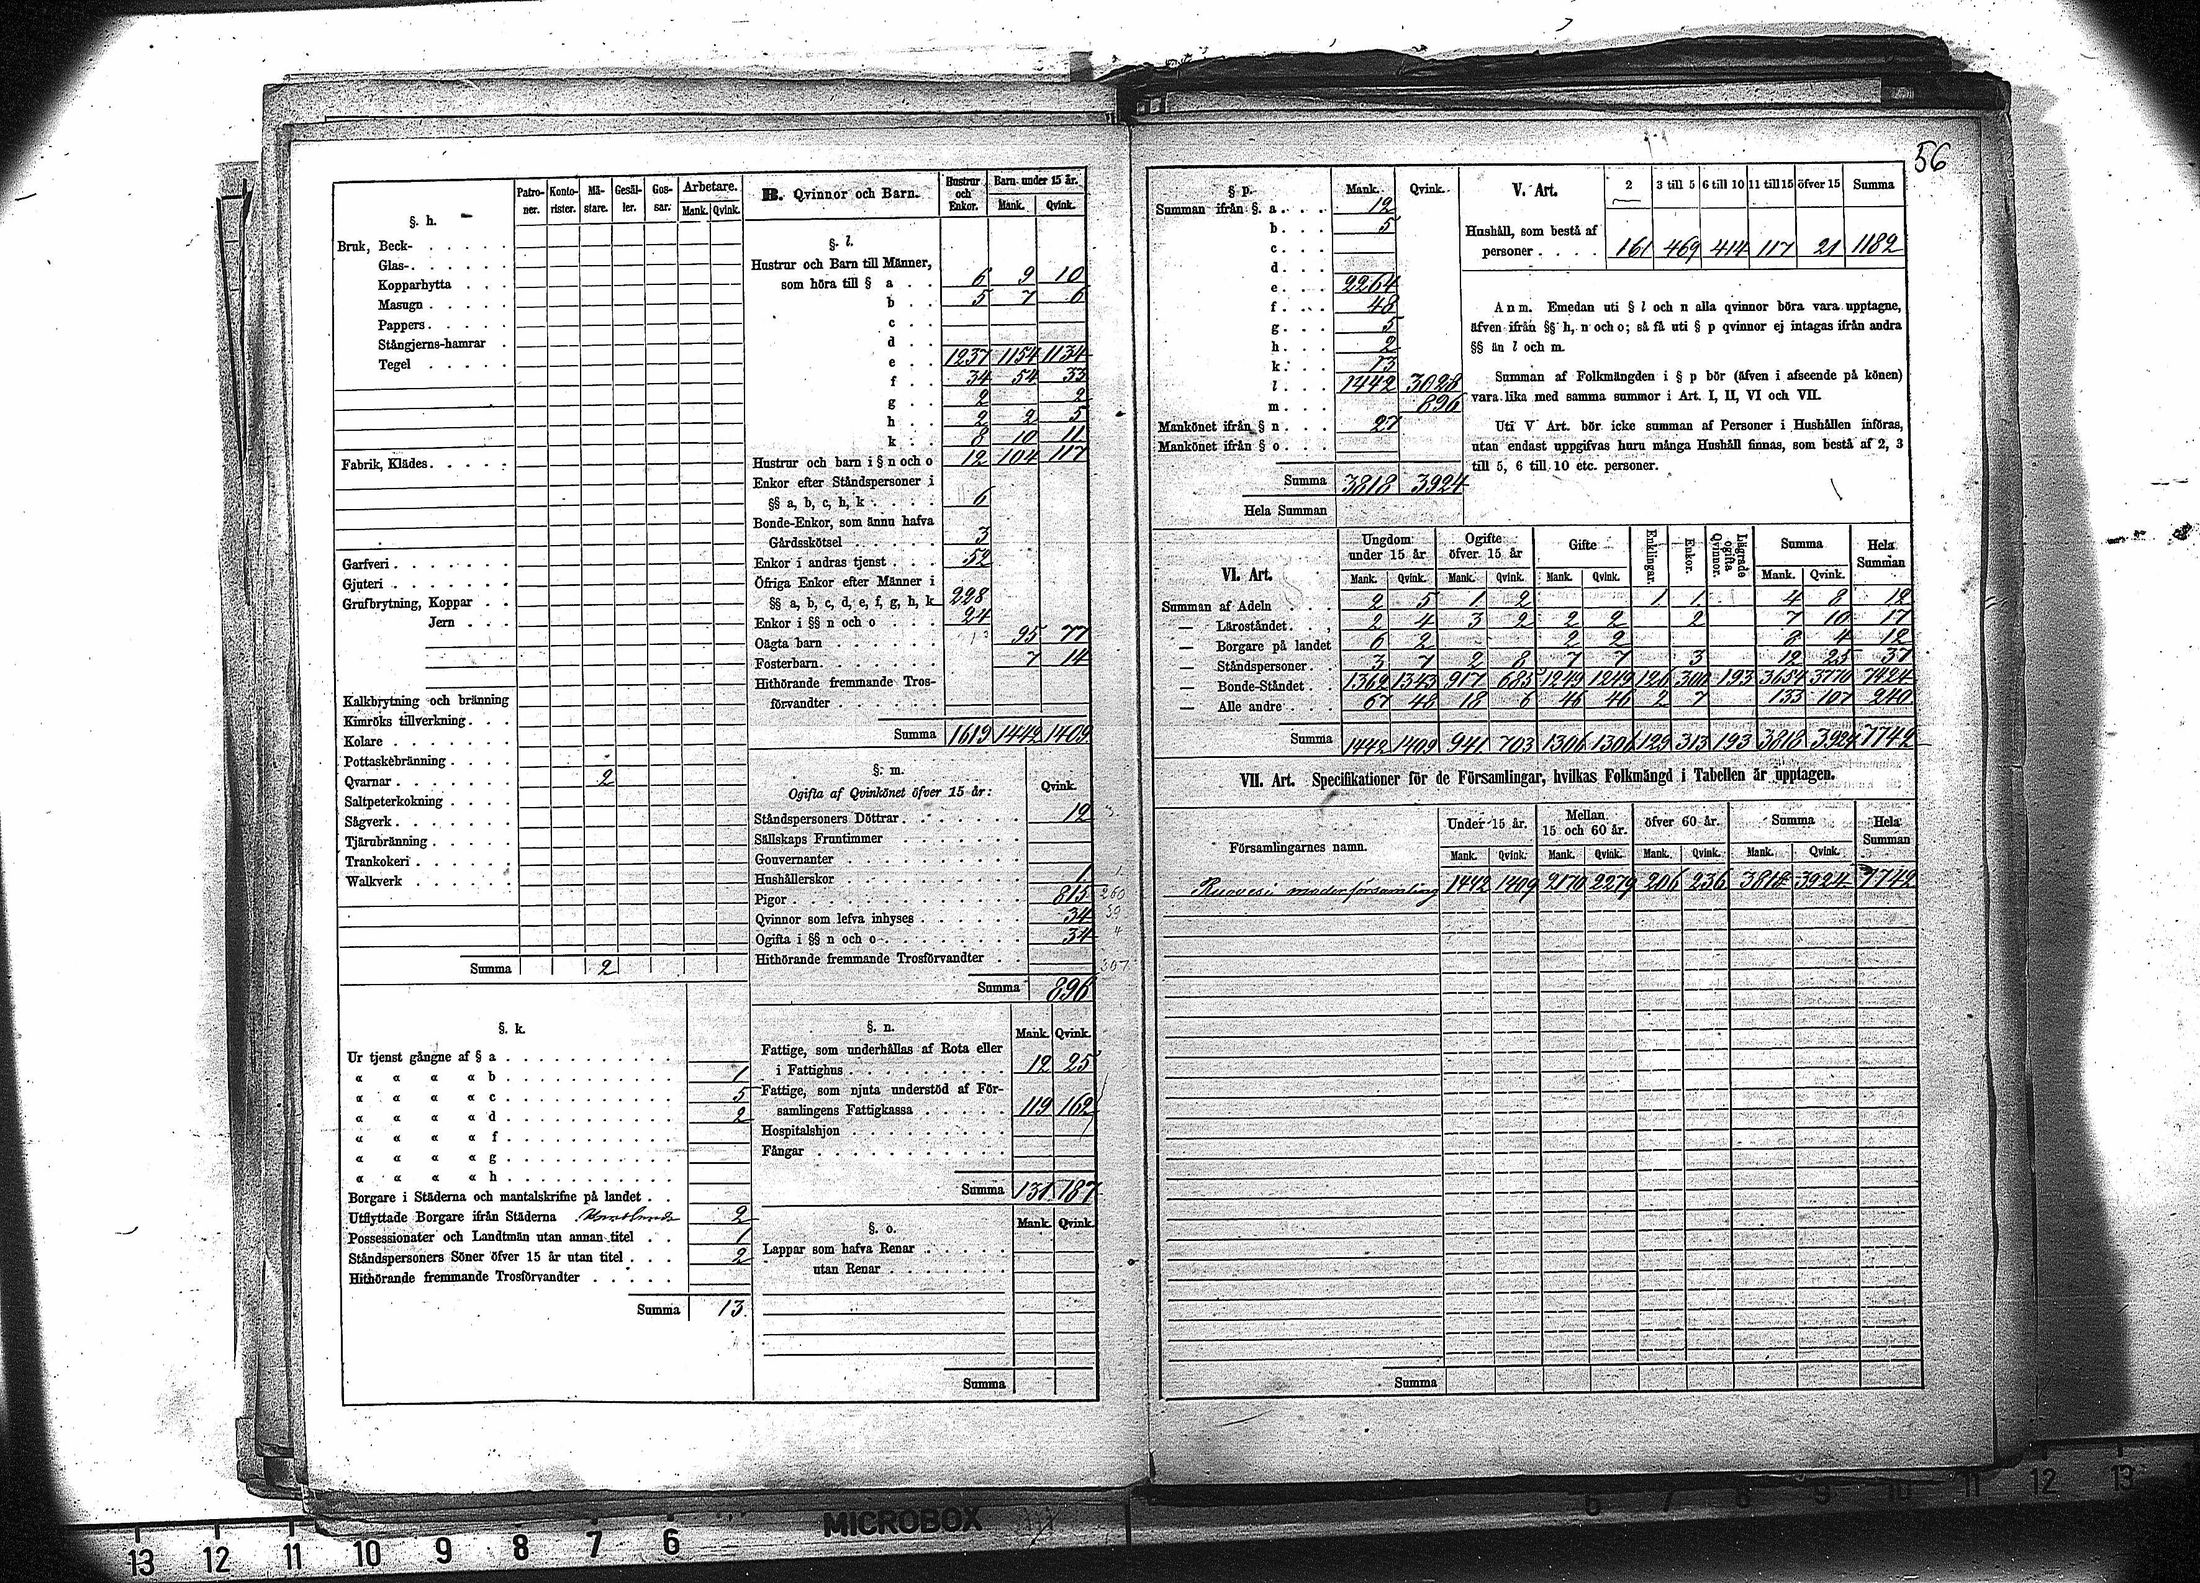 56
Patro-ner. Konto-rister. Mä-stare. Gesäl-ler. Gos-sar. Arbetare. Mank. Qvink.
§. h.
Bruk, Beck-
Glas-
Kopparhytta
Masugn
Pappers
Stångjerns-hamrar
Tegel
Fabrik, Klädes
Garfveri
Gjuteri
Grufbrytning, Koppar
Jern
Kalkbrytning och bränning
Kimröks tillverkning
Kolare
Pottaskebränning
Qvarnar 2
Saltpeterkokning
Sågverk
Tjärubränning
Trankokeri
Walkverk
Summa 2
§. k.
Ur tjenst gångne af § a
« « « « b 1
« « « « c 5
« « « « d 2
« « « « f
« « « « g
« « « « h
Borgare i Städerna och mantalskrifne på landet
Utflyttade Borgare ifrån Städerna 2
Possessionater och Landtmän utan annan titel 1
Ståndspersoners Söner öfver 15 år utan titel 2
Hithörande fremmande Trosförvandter
Summa 13
B. Qvinnor och Barn. Hustrur och Enkor. Barn under 15 år. Mank. Qvink.
§. l.
Hustrur och Barn till Männer,
som höra till § a 6 9 10
b 5 7 6
c
d
e 1237 1154 1134
f 34 54 33
g 2 2
h 2 2 5
k 8 10 11
Hustrur och barn i § n och o 12 104 117
Enkor efter Ståndspersoner i
§§ a, b, c, h, k 6
Bonde-Enkor, som ännu hafva
Gårdsskötsel 3
Enkor i andras tjenst 52
Öfriga Enkor efter Männer i
§§ a, b, c, d, e, f, g, h, k 228
Enkor i §§ n och o 24
Oägta barn 95 77
Fosterbarn 7 14
Hithörande fremmande Tros-
förvandter
Summa 1619 1442 1409
§. m.
Ogifta af Qvinkönet öfver 15 år: Qvink.
Ståndspersoners Döttrar 19
Sällskaps Fruntimmer
Gouvernanter
Hushållerskor 1
Pigor 815 260
Qvinnor som lefva inhyses 34 39
Ogifta i §§ n och o 34
Hithörande fremmande Trosförvandter 307
Summa 896
§. n. Mank. Qvink.
Fattige, som underhållas af Rota eller
i Fattighus 12 25
Fattige, som njuta understöd af För-
samlingens Fattigkassa 119 162
Hospitalshjon
Fångar
Summa 131 187
§. o. Mank. Qvink.
Lappar som hafva Renar
utan Renar
Summa
§ p. Mank. Qvink.
Summan ifrån §. a 12
b 5
c
d
e 2264
f 48
g 5
h 2
k 13
l 1442 3028
m 896
Mankönet ifrån § n 27
Mankönet ifrån § o
Summa 3818 3924
Hela Summan
V. Art. 2 3 till 5 6 till 10 11 till 15 öfver 15 Summa
Hushåll, som bestå af
personer 161 469 414 117 21 1182
Anm. Emedan uti § l och n alla qvinnor böra vara upptagne,
äfven ifrån §§ h, n och o; så få uti § p qvinnor ej intagas ifrån andra
§§ än l och m.
Summan af Folkmängden i § p bör (äfven i afseende på könen)
vara lika med samma summor i Art. I, II, VI och VII.
Uti V Art. bör icke summan af Personer i Hushållen införas,
utan endast uppgifvas huru många Hushåll finnas, som bestå af 2, 3
till 5, 6 till 10 etc. personer.
VI. Art. Ungdom under 15 år Ogifte öfver 15 år Gifte Enklingar. Enkor. Lägrade ogifta Qvinnor. Summa Hela Summan
Mank. Qvink. Mank. Qvink. Mank. Qvink. Mank. Qvink.
Summan af Adeln 2 5 1 2 1 1 4 8 12
— Läroståndet 2 4 3 2 2 2 2 7 10 17
— Borgare på landet 6 2 2 2 8 4 12
— Ståndspersoner 3 7 2 8 7 7 3 12 25 37
— Bonde-Ståndet 1362 1343 917 685 1249 1249 126 300 193 3654 3770 7424
— Alle andre 67 48 18 6 46 46 2 7 133 107 240
Summa 1442 1409 941 703 1306 1306 129 313 193 3818 3924 7742
VII. Art. Specifikationer för de Församlingar, hvilkas Folkmängd i Tabellen är upptagen.
Församlingarnes namn. Under 15 år. Mellan 15 och 60 år. öfver 60 år. Summa Hela Summan
Mank. Qvink. Mank. Qvink. Mank. Qvink. Mank. Qvink.
Ruovesi moderförsamling 1442 1409 2170 2279 206 236 3818 3924 7742
Summa
13 12 11 10 9 8 7 6 MICROBOX 6 7 8 9 10 11 12 13